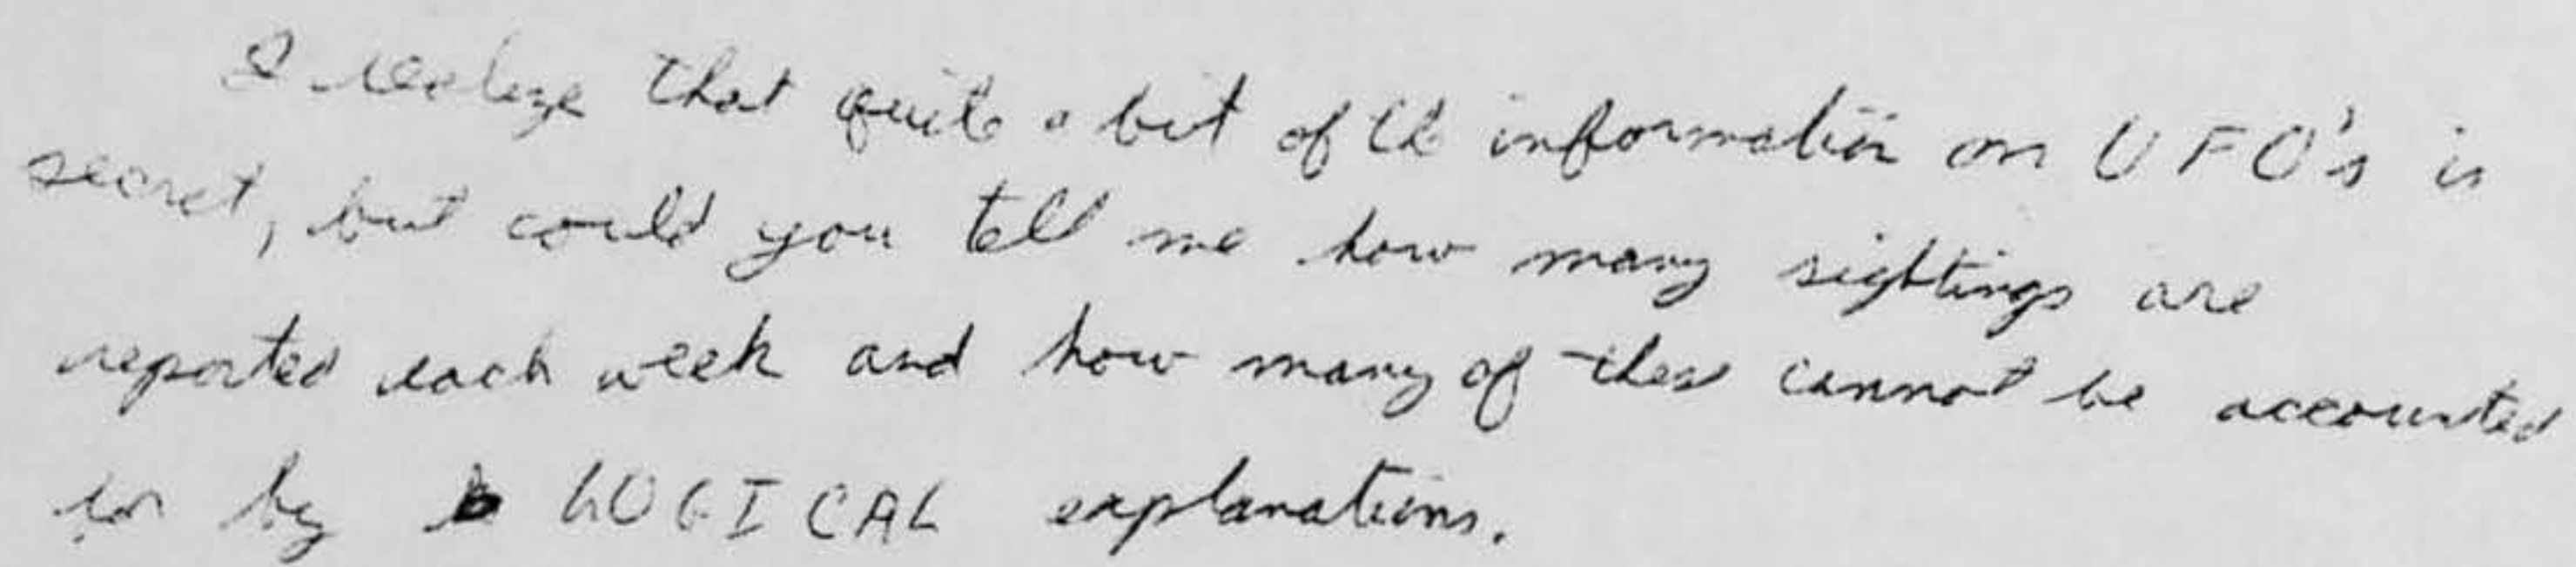 I realize that quite a bit of the information on UFO's is
secret, but could you tell me how many sightings are
reported each week and how many of these cannot be accounted
for by LOGICAL explanations.